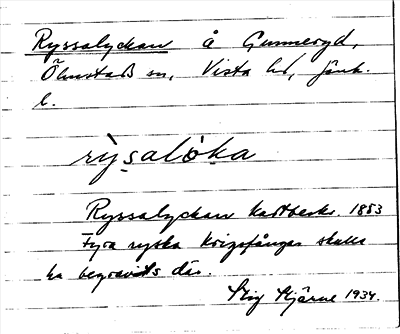 Ryssalyckan å Gunneryd,
Ölmstads sn, Vista hd, Jönk.
l.
rỳsalò̩ka
Ryssalyckan kartbeskr. 1883
Fyra ryska krigsfångar skulle
ha begravits där.
Stig Stjärne 1934.